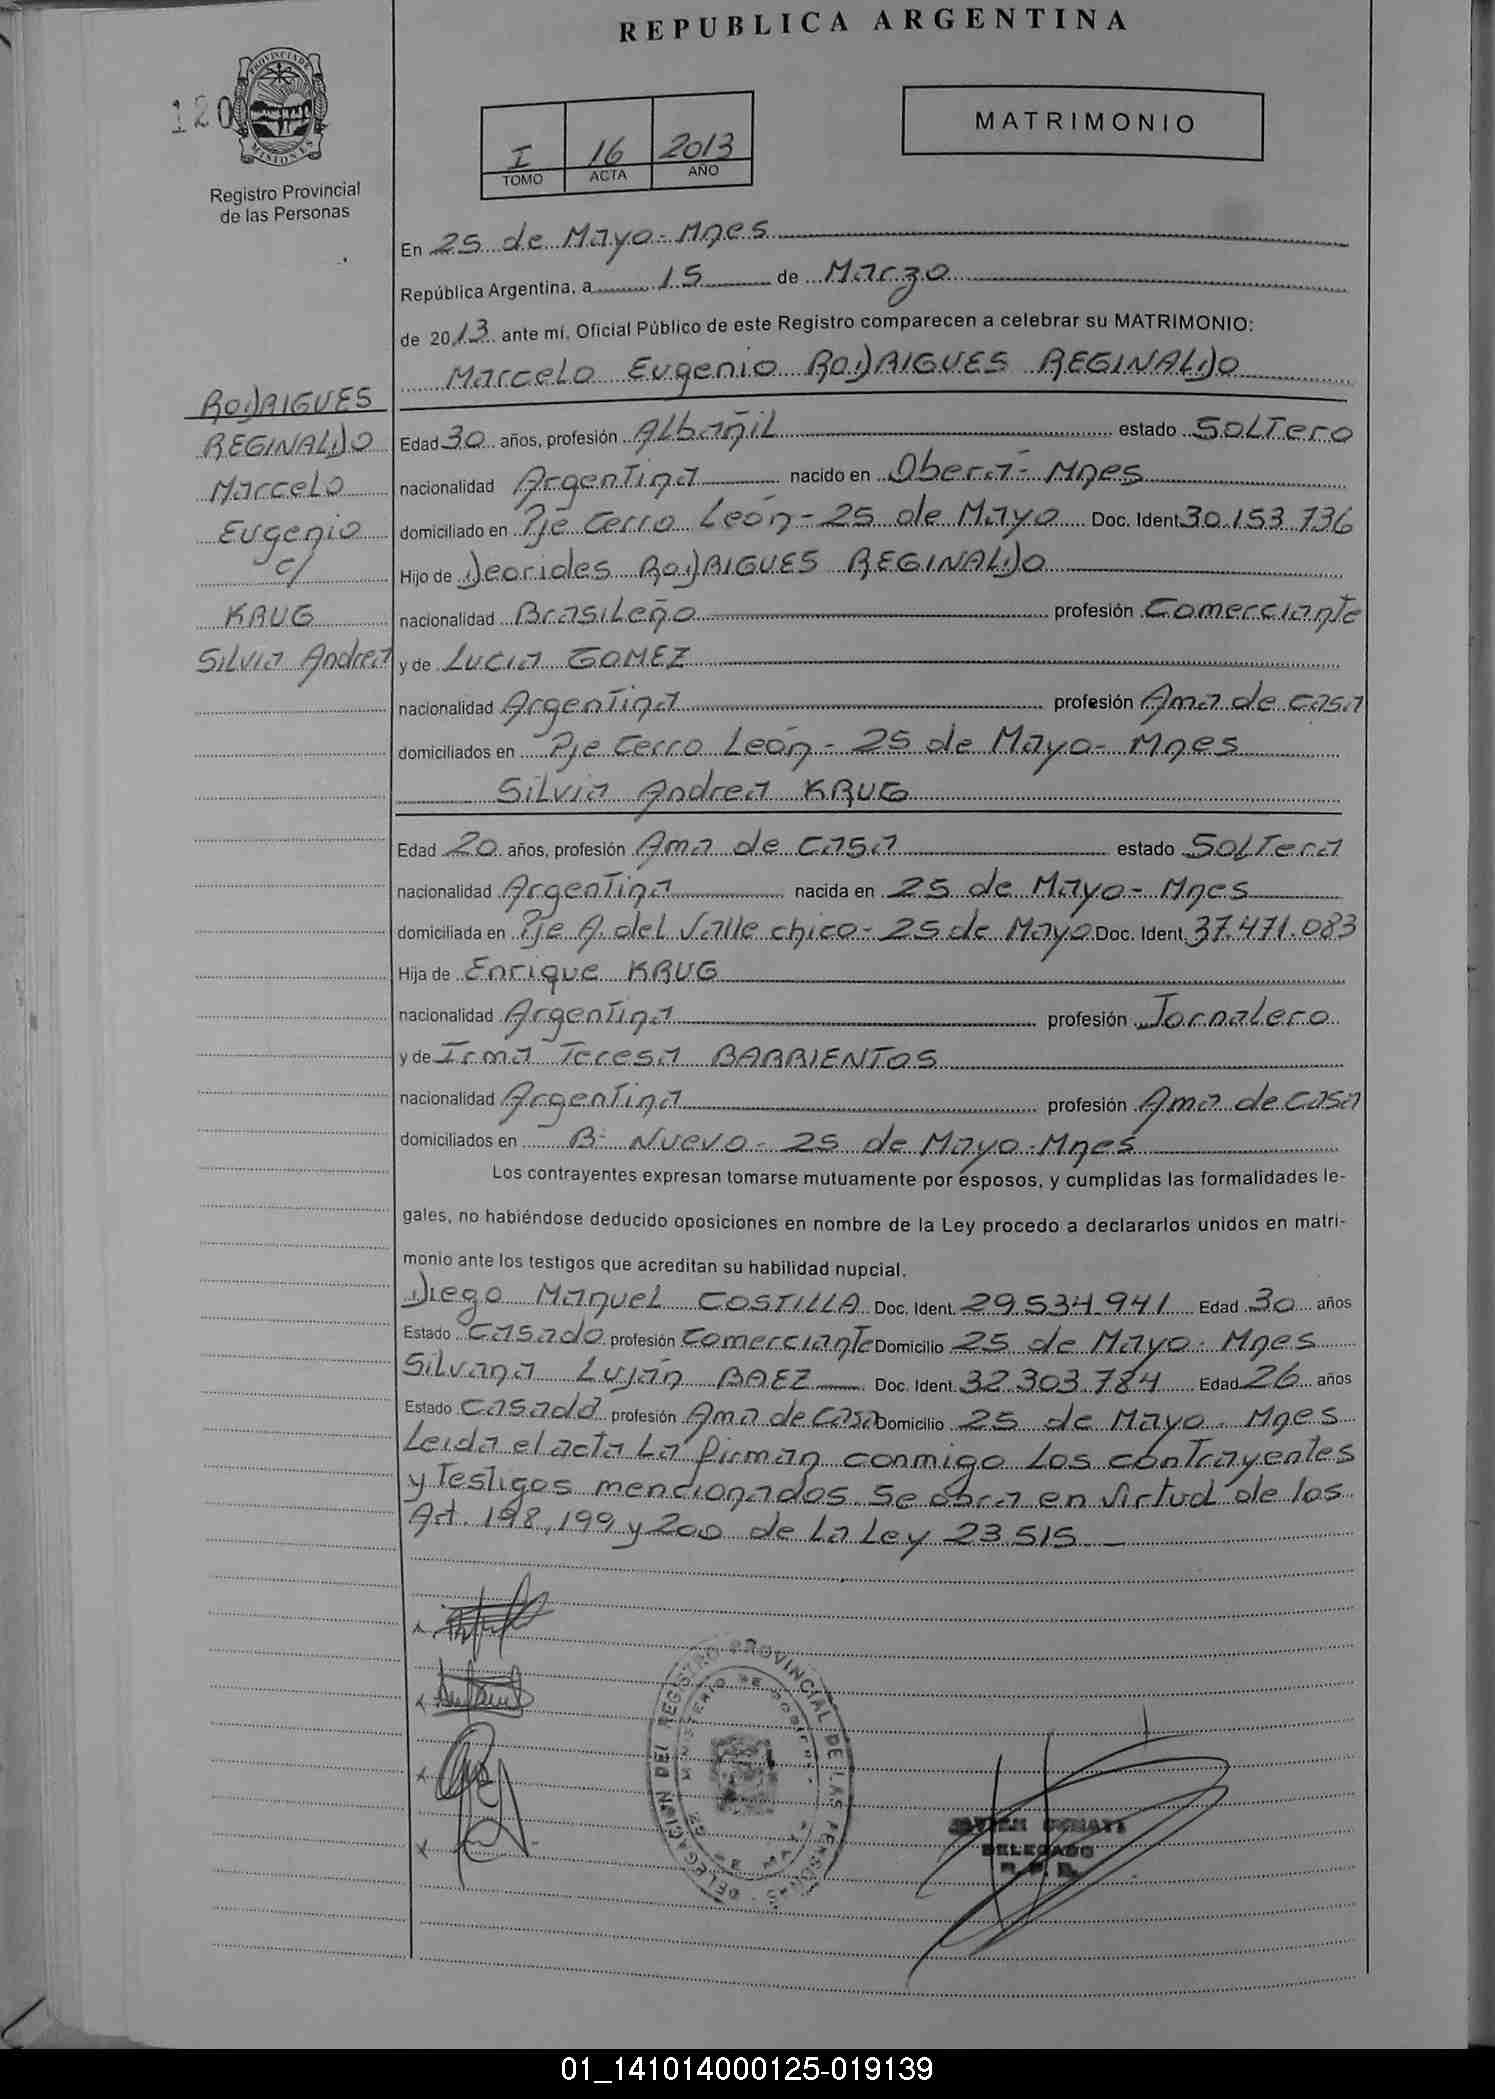 REPUBLICA ARGENTINA
120
PROVINCIA DE
MISIONES
Registro Provincial
de las Personas
I 16 2013
TOMO ACTA AÑO
MATRIMONIO
En 25 de Mayo - Mnes
República Argentina, a 15 de Marzo
de 2013 ante mí, Oficial Público de este Registro comparecen a celebrar su MATRIMONIO:
Marcelo Eugenio RODRIGUES REGINALDO
RODRIGUES
REGINALDO
Marcelo
Eugenio
c/
KRUG
Silvia Andrea
Edad 30 años, profesión Albañil estado Soltero
nacionalidad Argentina nacido en Oberá - Mnes
domiciliado en Pje Cerro León - 25 de Mayo Doc. Ident. 30.153.736
Hijo de Deorides RODRIGUES REGINALDO
nacionalidad Brasileño profesión Comerciante
y de Lucia GOMEZ
nacionalidad Argentina profesión Ama de casa
domiciliados en Pje Cerro León - 25 de Mayo - Mnes
Silvia Andrea KRUG
Edad 20 años, profesión Ama de casa estado Soltera
nacionalidad Argentina nacida en 25 de Mayo - Mnes
domiciliada en Pje A. del Valle chico - 25 de Mayo Doc. Ident. 37.471.083
Hija de Enrique KRUG
nacionalidad Argentina profesión Jornalero
y de Irma Teresa BARRIENTOS
nacionalidad Argentina profesión Ama de casa
domiciliados en B° Nuevo - 25 de Mayo - Mnes
Los contrayentes expresan tomarse mutuamente por esposos, y cumplidas las formalidades le-
gales, no habiéndose deducido oposiciones en nombre de la Ley procedo a declararlos unidos en matri-
monio ante los testigos que acreditan su habilidad nupcial.
Diego Manuel COSTILLA Doc. Ident. 29.534.941 Edad 30 años
Estado Casado profesión Comerciante Domicilio 25 de Mayo - Mnes
Silvana Luján BAEZ Doc. Ident. 32.303.784 Edad 26 años
Estado Casada profesión Ama de Casa Domicilio 25 de Mayo - Mnes
Leida el acta La firman conmigo Los contrayentes
y Testigos mencionados. Se obra en virtud de los
Art. 198, 199 y 200 de La Ley 23.515
DELEGACION DEL REGISTRO PROVINCIAL DE LAS PERSONAS
MINISTERIO DE GOBIERNO
25 DE MAYO
DELEGADO
01_141014000125-019139